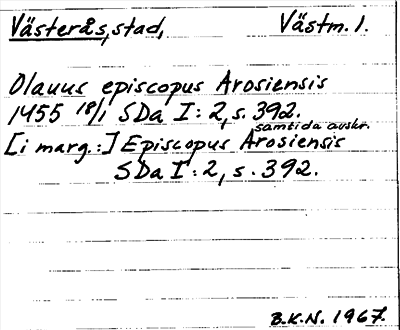 Västerås, stad, Västm. l.
Olauus episcopus Arosiensis
1455 18/1 SDa I: 2, s. 392.
samtida avskr.
[i marg.:] Episcopus Arosiensis
SDa I: 2, s. 392.
B.K.N. 1967.